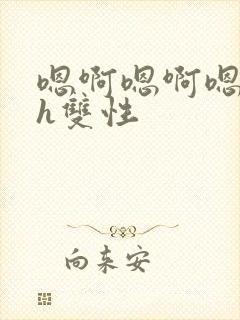 嗯啊嗯啊嗯
h雙性
向来安